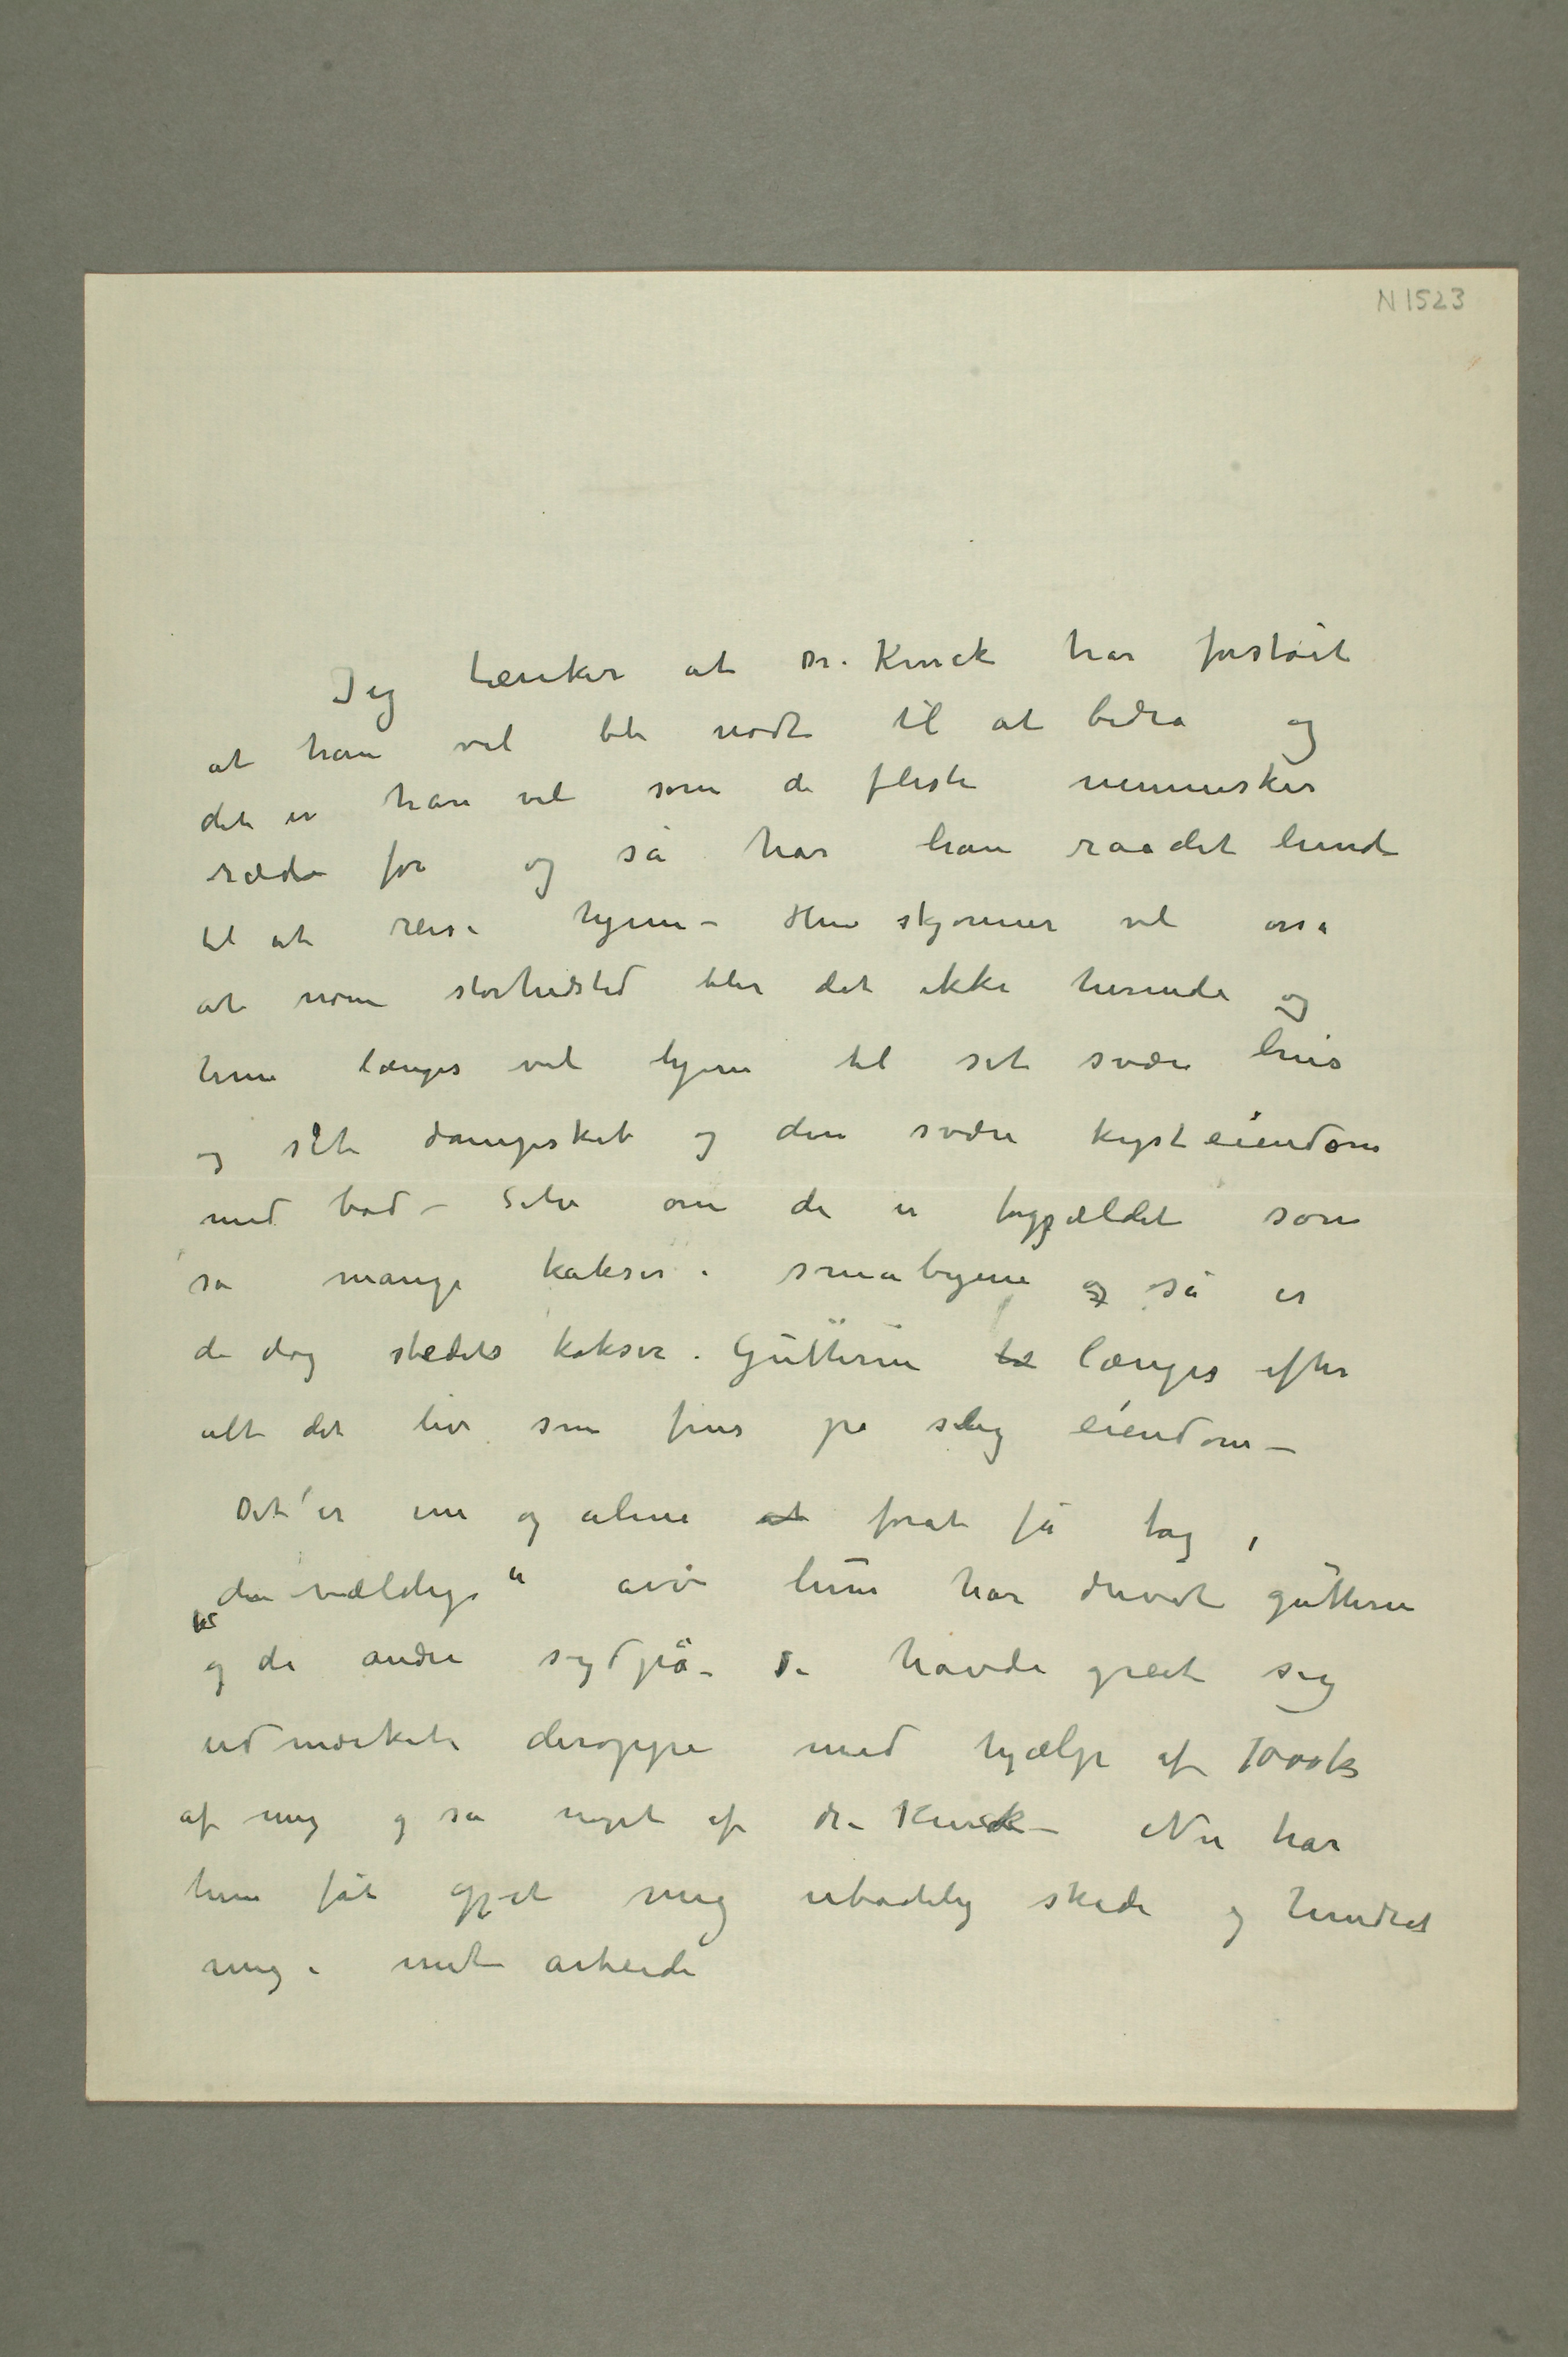 N 1523
Jeg tænker at Dr. Kinck har forståt
at han vel bli nødt til at bidra og
det er han vel som de fleste mennesker
rædd for og så har han raadet hende
til at reise hjem – Hun skjønner vel osså
at noen storhedstid blir det ikke herinde og
hun længes vel hjem til sit svære hus
og sit dampskib og den svære kysteiendom
med båd – Selv om de er forgjældet som
så mange kakser i småbyene og så er
de dog stedets kakser. Gutterne længes efter
alt det liv som fins på slig eiendom –
Det er ene og alene at forat få tag i
den vældige" arv hun har drivet gutterne
og de andre sydpå – De havde greit sig
udmærket deroppe med hjælp af 1000 kr
af mig og så noget af dr. Kinck – Nu har
hun fåt gjort mig ubodelig skade og hindret
mig i mit arbeide